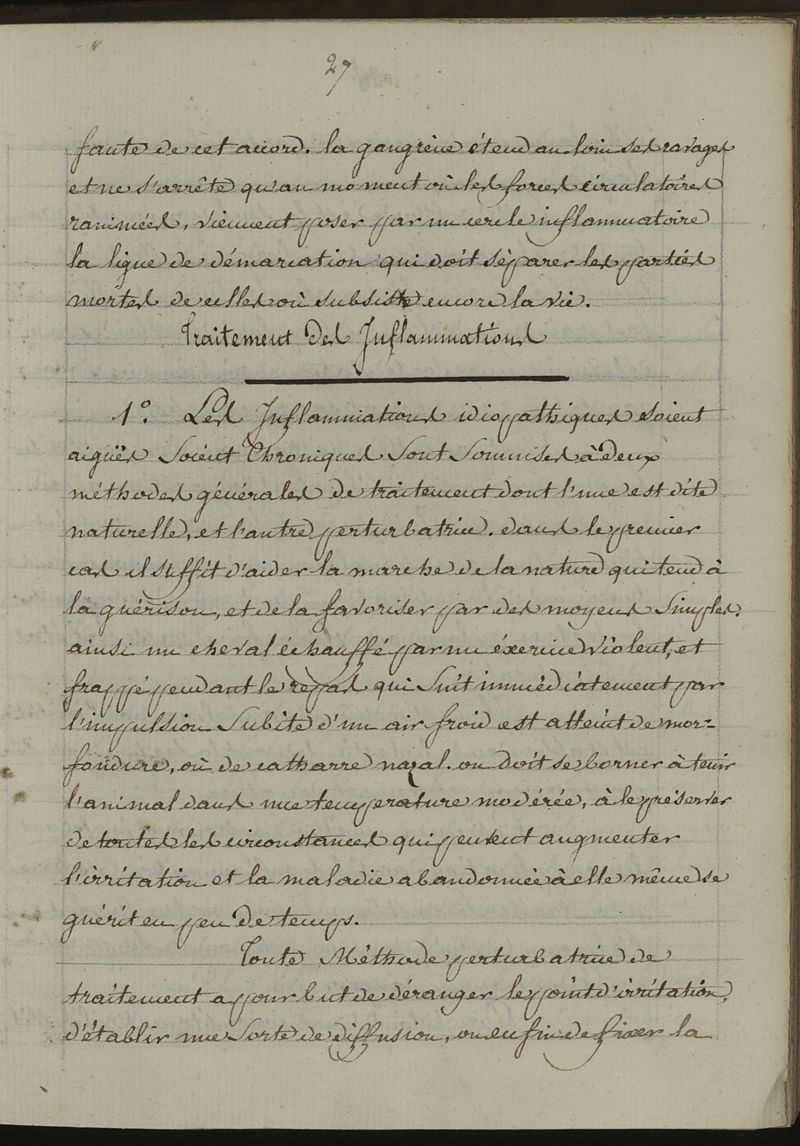 27
faute de cet accord. la gangrène étend au loin ses ravages
et ne s'arrête qu'au moment où les forces circulatoires
ranimées, viennent poser par un cercle inflammatoire
la ligne de démarcation qui doit séparer les parties
mortes de celles où subsiste encore la vie.
Traitement Des Inflammations
1°. Les Inflammations idiopathiques soient
aiguës soient Chroniques sont soumises à deux
méthodes générales de traitement dont l'une est dite
naturelle, et l'autre perturbatrice. dans le premier
cas il suffit d'aider la marche de la nature qui tend à
la guérison, et de la favoriser par des moyens simples.
ainsi un cheval échauffé par un éxercice violent, et
frappé pendant le repas qui suit immédiatement par
l'impulsion subite d'un air froid est atteint de mor=
fondure, où de catharre nazal. on doit se borner à tenir
l'animal dans une température modérée, à le préserver
de toutes les circonstances qui peuvent augmenter
l'irritation et la maladie abandonnée à elle même se
guérit en peu de temps.
Toute Méthode perturbatrice de
traitement a pour but de déranger le point d'irritation,
d'établir une sorte de diffusion, ou enfin de fixer la